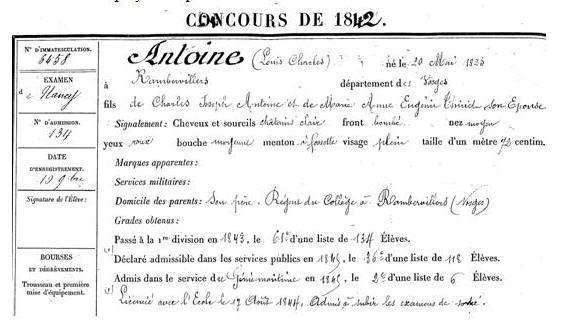 CONCOURS DE 1842.
N° D'IMMATRICULATION.
6458
EXAMEN
de Nancy
N° D'ADMISSION.
134
DATE
D'ENREGISTREMENT.
19 9bre
Signature de l'Élève:
BOURSES
ET DÉGRÈVEMENTS.
Trousseau et première
mise d'équipement.
Antoine (Louis Charles) né le 20 Mai 1823
à Rambervillers département des Vosges
fils de Charles Joseph Antoine et de Marie Anne Eugénie son Epouse
Signalement: Cheveux et sourcils châtain clair front bombé nez moyen
yeux roux bouche moyenne menton à fossette visage plein taille d'un mètre 72 centim.
Marques apparentes:
Services militaires:
Domicile des parents: Son père, Régent du Collège à Rambervillers (Vosges)
Grades obtenus:
Passé à la 1re division en 1843, le 61e d'une liste de 134 Élèves.
Déclaré admissible dans les services publics en 1845, le 36e d'une liste de 118 Élèves.
Admis dans le service du Génie maritime en 1845, le 2e d'une liste de 6 Élèves.
Licencié avec l'Ecole le 17 Août 1844, Admis à subir les examens de